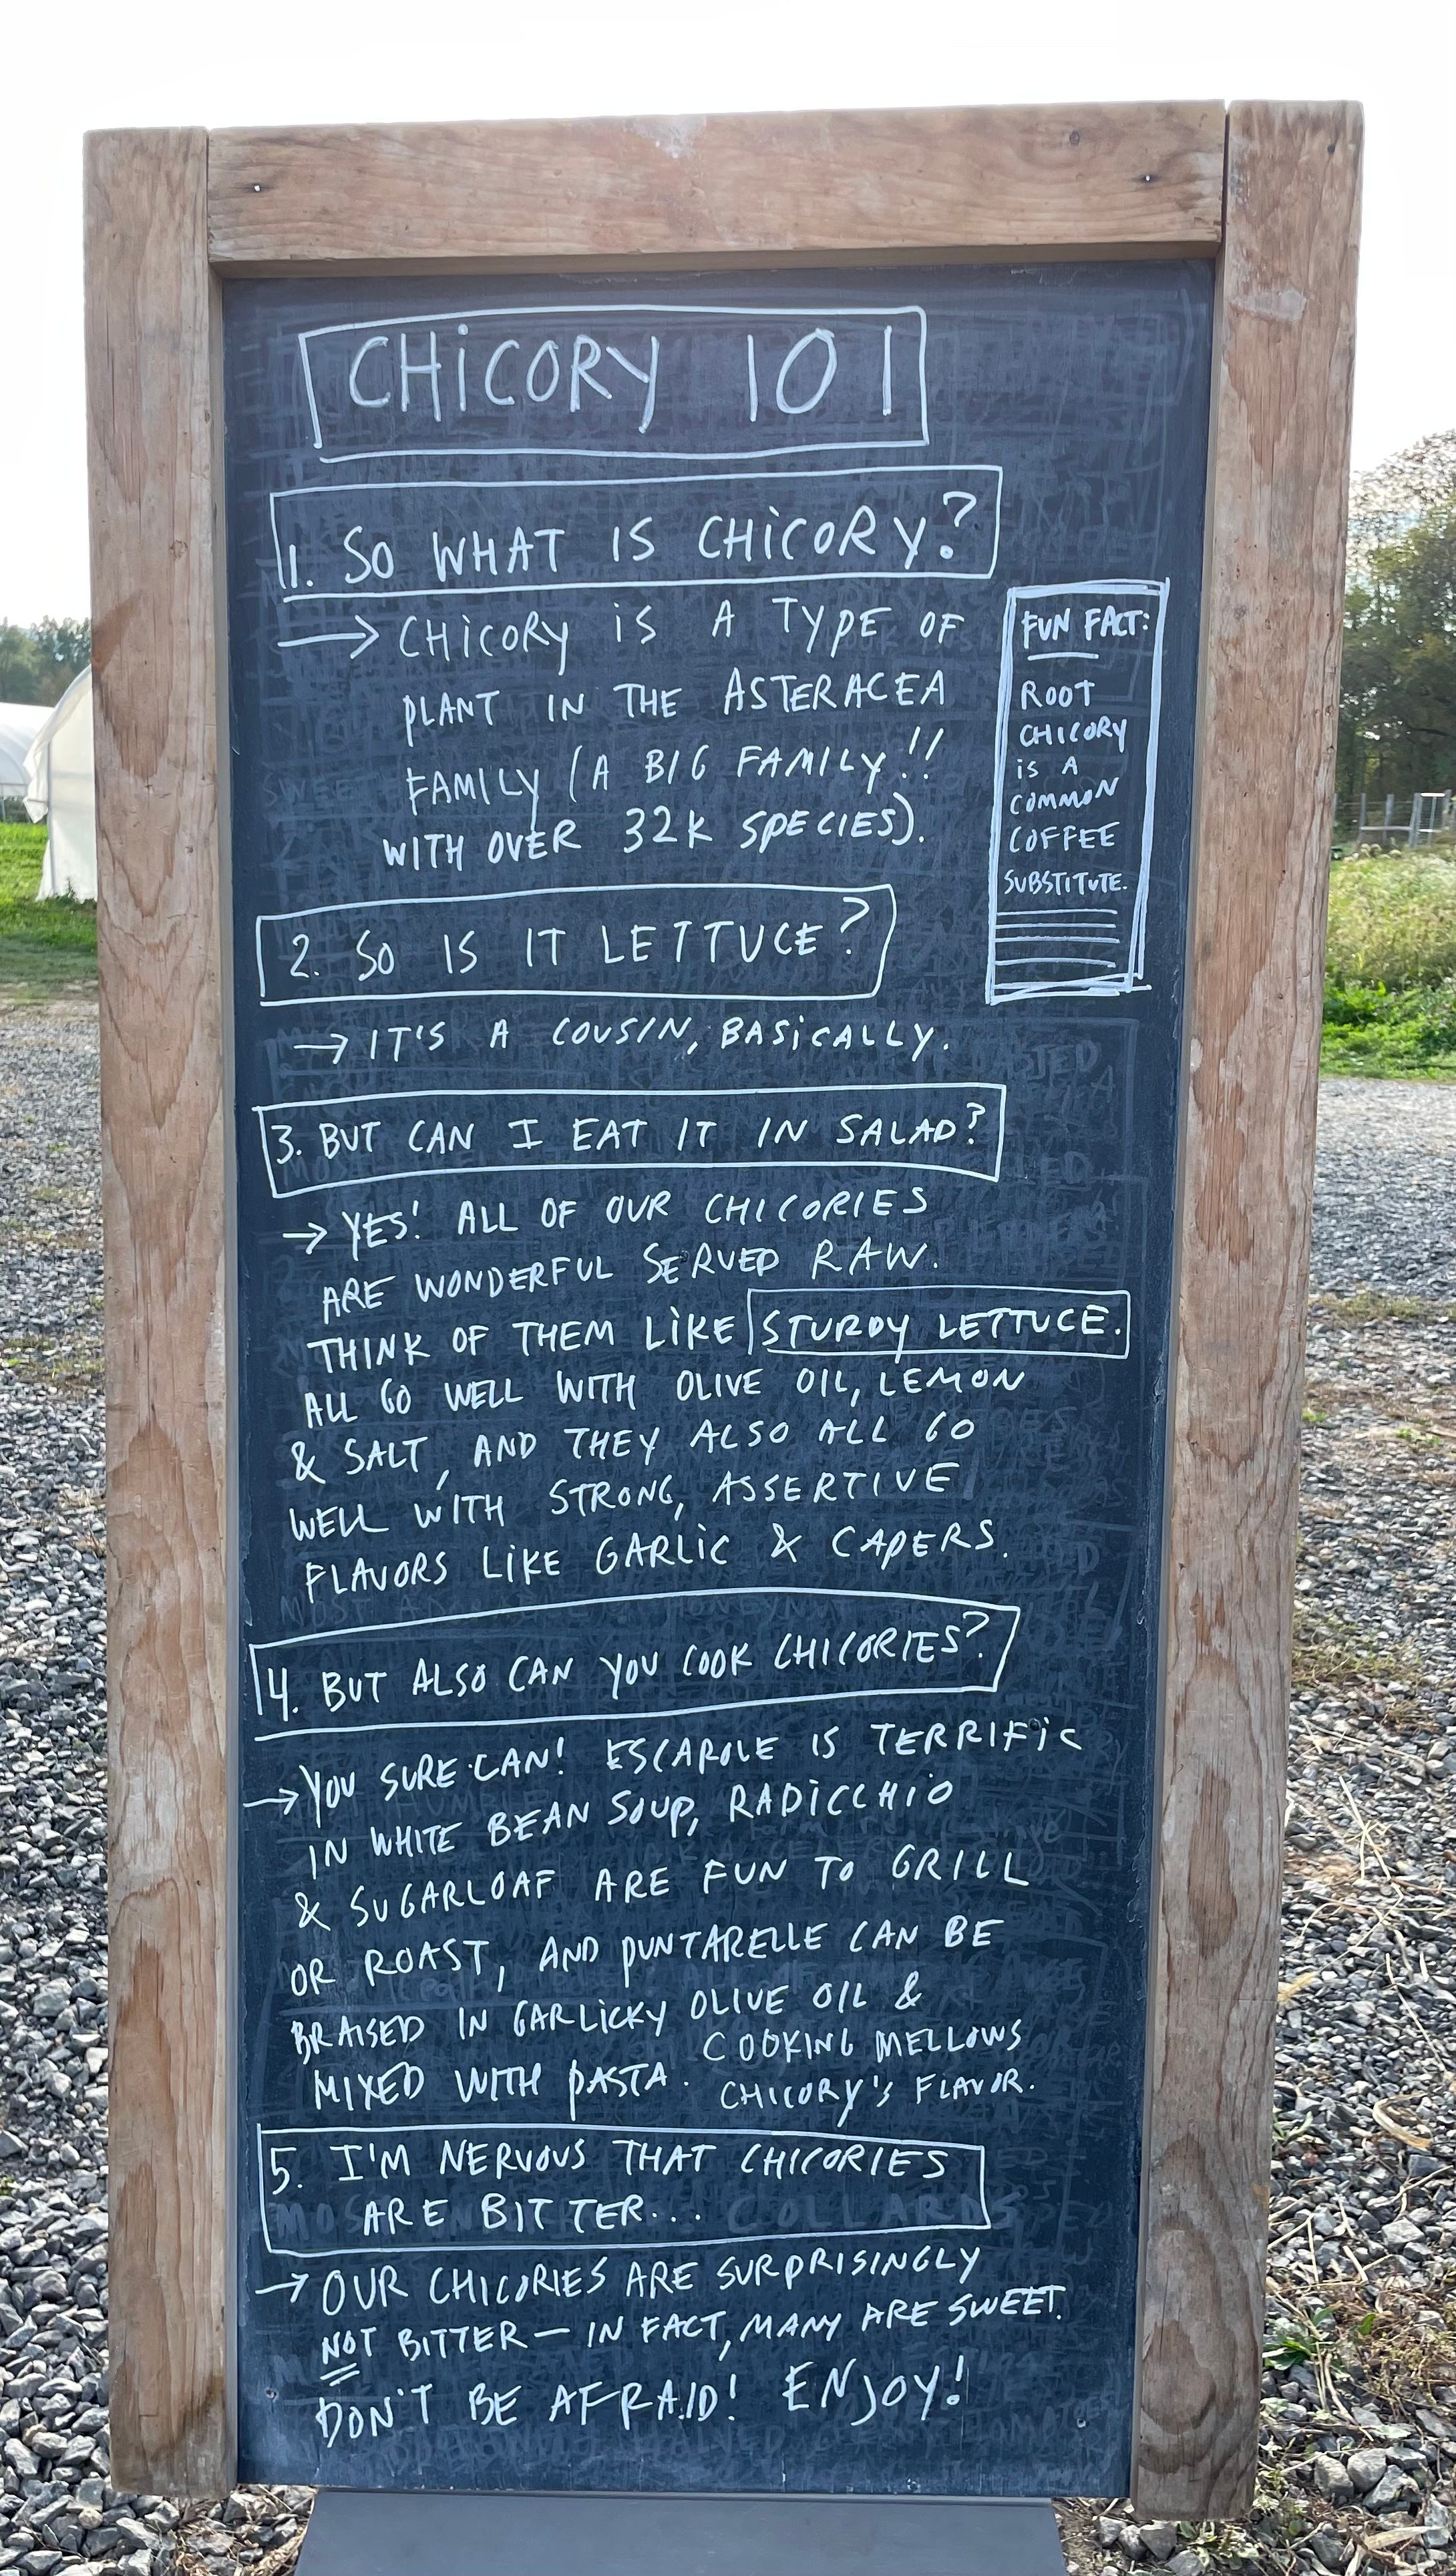 CHiCORY 101
1. SO WHAT IS CHiCORY?
→ CHiCORY iS A TYPE OF
PLANT IN THE ASTERACEA
FAMILY (A BIG FAMILY!!
WITH OVER 32K SPECIES).
FUN FACT:
ROOT
CHICORY
iS A
COMMON
COFFEE
SUBSTITUTE.
2. SO IS IT LETTUCE?
→ IT'S A COUSIN, BASiCALLY.
3. BUT CAN I EAT IT IN SALAD?
→ YES! ALL OF OUR CHICORIES
ARE WONDERFUL SERVED RAW.
THINK OF THEM LiKE STURDY LETTUCE.
ALL GO WELL WITH OLIVE OIL, LEMON
& SALT, AND THEY ALSO ALL GO
WELL WITH STRONG, ASSERTIVE
FLAVORS LiKE GARLiC & CAPERS.
4. BUT ALSO CAN YOU COOK CHICORIES?
→ YOU SURE CAN! ESCAROLE IS TERRIFiC
IN WHITE BEAN SOUP, RADiCCHiO
& SUGARLOAF ARE FUN TO GRILL
OR ROAST, AND PUNTARELLE CAN BE
BRAISED IN GARLiCKY OLIVE OIL &
MIXED WITH PASTA. COOKING MELLOWS
CHICORY'S FLAVOR.
5. I'M NERVOUS THAT CHICORIES
ARE BITTER...
→ OUR CHICORIES ARE SURPRISINGLY
NOT BITTER — IN FACT, MANY ARE SWEET.
DON'T BE AFRAID! ENJOY!